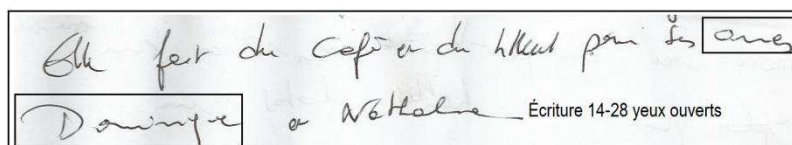 Elle fait du café et du tilleul pour ses amies
Dominique et Nathalie Écriture 14-28 yeux ouverts